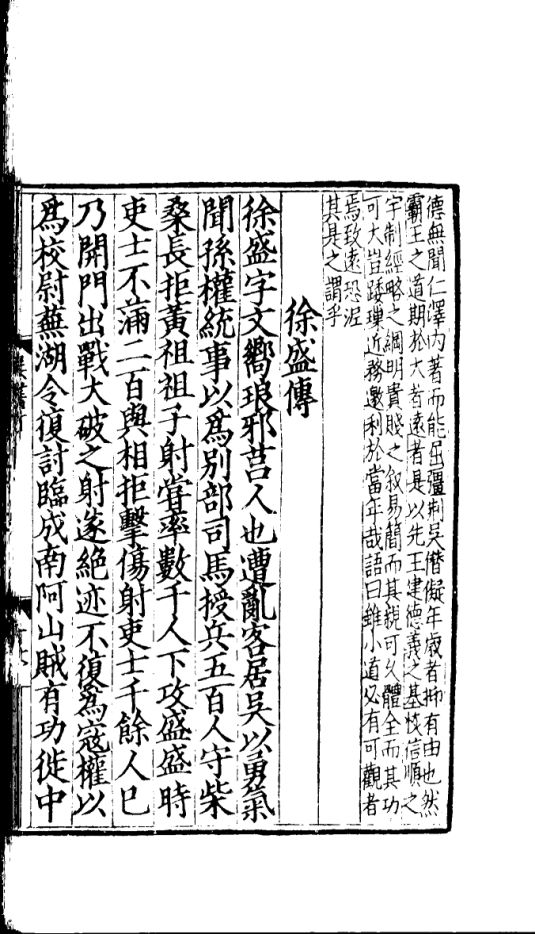 德無聞仁澤內著而能屈彊荆吳僭儗年歲者抑有由也然
霸王之道期於大者遠者是以先王建德義之基恢信順之
宇制經略之綱明貴賤之敘易簡而其親可久體全而其功
可大豈踐璅近務邀利於當年哉語曰雖小道必有可觀者
焉致遠恐泥
其是之謂乎
徐盛傳
徐盛字文嚮琅邪莒人也遭亂客居吳以勇氣
聞孫權統事以為別部司馬授兵五百人守柴
桑長拒黃祖祖子射嘗率數千人下攻盛盛時
吏士不滿二百與相拒擊傷射吏士千餘人巳
乃開門出戰大破之射遂絕迹不復為寇權以
為校尉蕪湖令復討臨成南阿山賊有功徙中